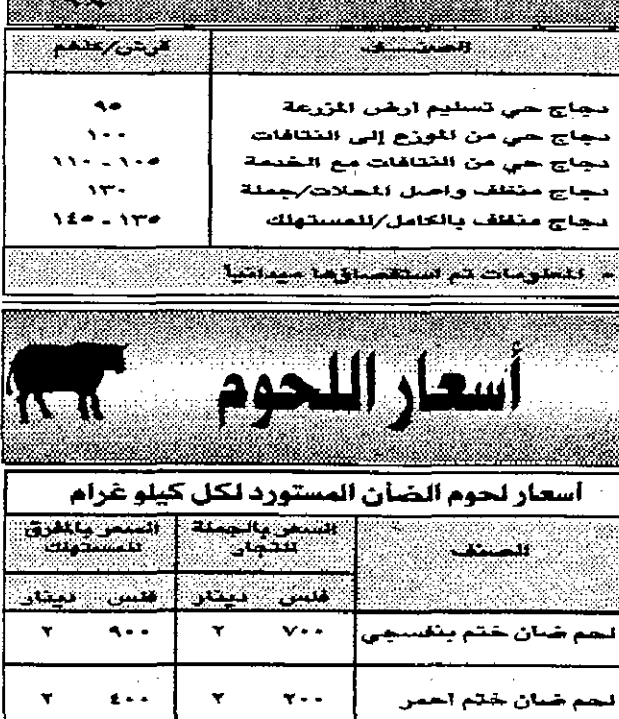 الصنف قرش/كلغم
دجاج حي تسليم ارض المزرعة ٩٥
دجاج حي من الموزع إلى النتافات ١٠٠
دجاج حي من النتافات مع الخدمة ١٠٥ - ١١٠
دجاج منظف واصل المحلات/جملة ١٣٠
دجاج منظف بالكامل/للمستهلك ١٣٥ - ١٤٥
- المعلومات تم استقصاؤها ميدانياً
أسعار اللحوم
أسعار لحوم الضأن المستورد لكل كيلو غرام
الصنف السعر بالجملة للتجار السعر بالمفرق للمستهلك
فلس دينار فلس دينار
لحم ضان ختم بنفسجي ٧٠٠ ٢ ٩٠٠ ٢
لحم ضان ختم احمر ٢٠٠ ٢ ٤٠٠ ٢